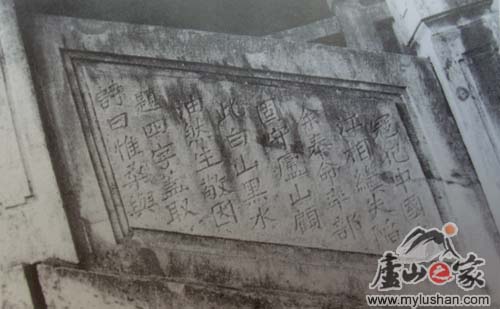 寇犯中國
江相繼失陷
余奉命率部
固守廬山顧
此白山黑水
油然生敬因
題四字蓋取
詩曰惟桑與
廬山之家
www.mylushan.com